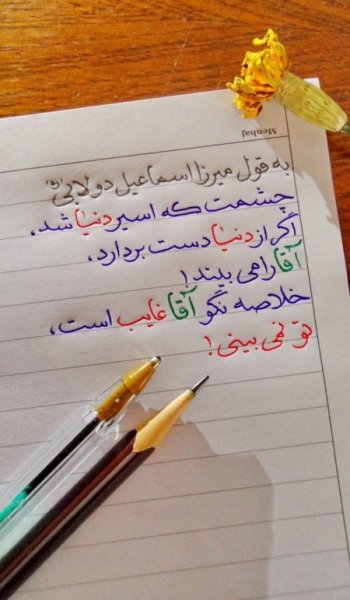 Menhaj
به قول میرزا اسماعیل دولابی(ره)
چشمت که اسیر دنیا شد،
اگر از دنیا دست بردارد،
آقا را می بیند!
خلاصه نگو آقا غایب است،
تو نمی بینی!